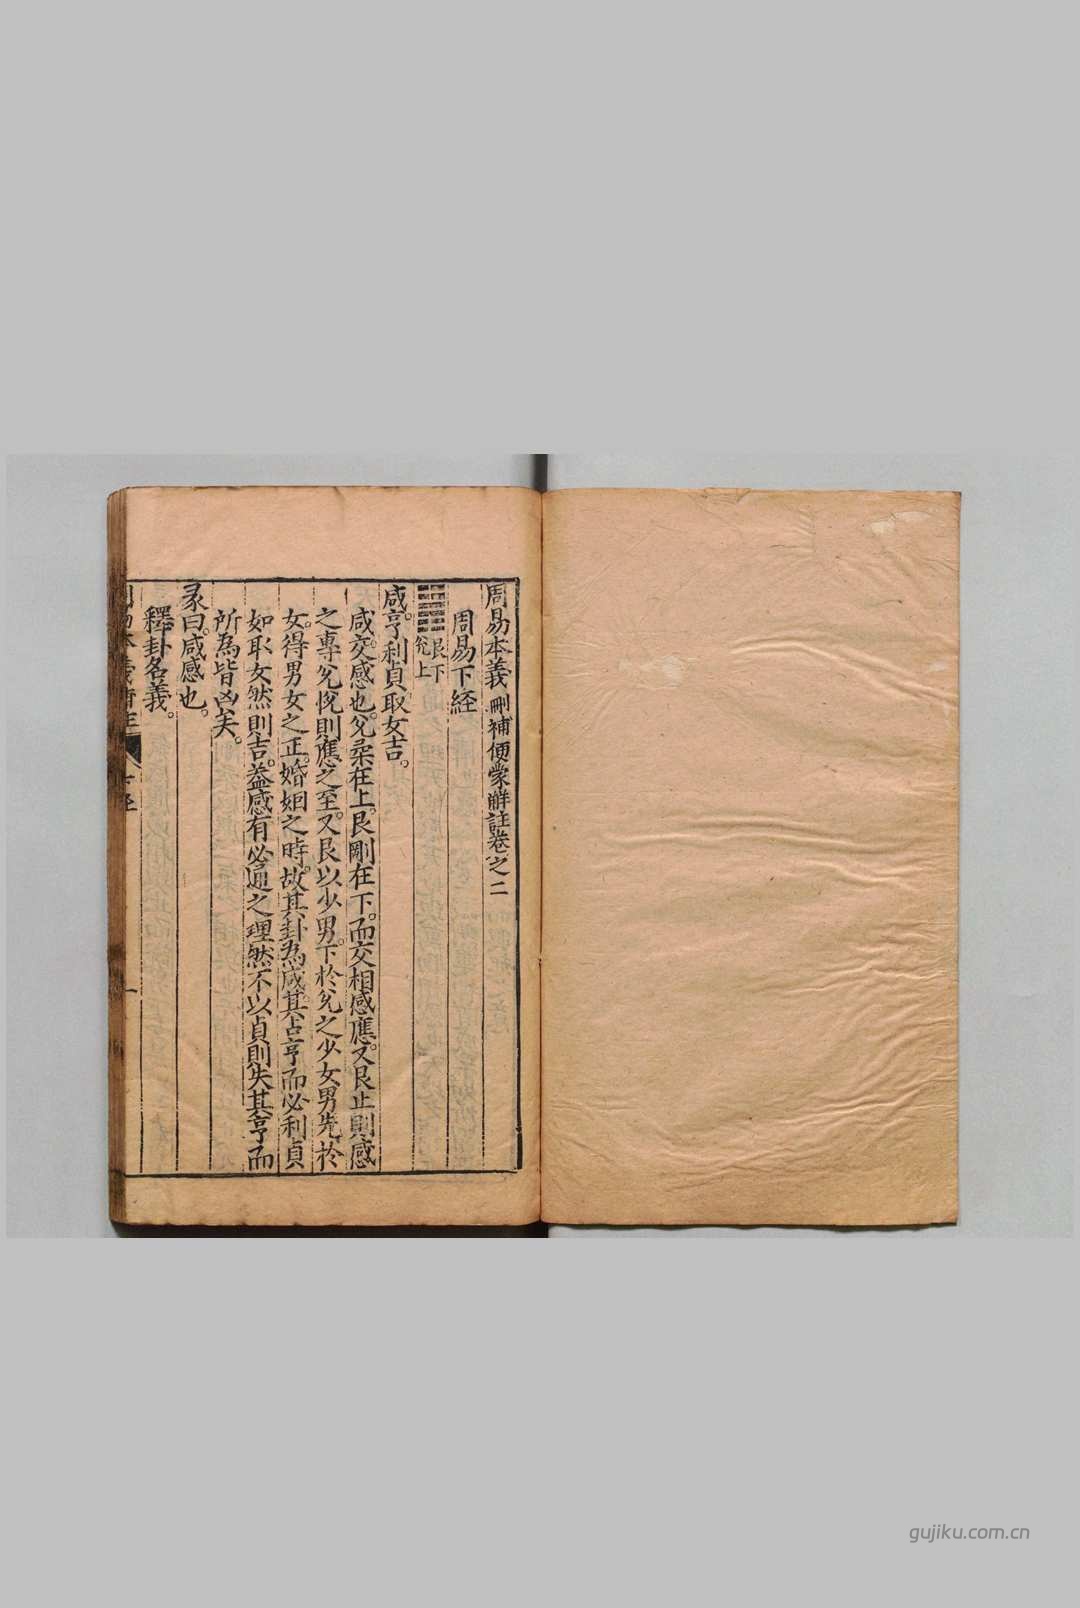 周易本義刪補便蒙解註卷之二
周易下經
艮下
兌上
咸。亨利貞取女吉。
咸。交感也。兌柔在上。艮剛在下。而交相感應。又艮止則感
之專。兌悅則應之至。又艮以少男。下於兌之少女。男先於
女。得男女之正。婚姻之時。故其卦爲咸。其占亨而必利貞
如取女然則吉。蓋感有必通之理。然不以貞則失其亨。而
所爲皆凶矣。
彖曰。咸感也。
釋卦名義。
一
gujiku.com.cn